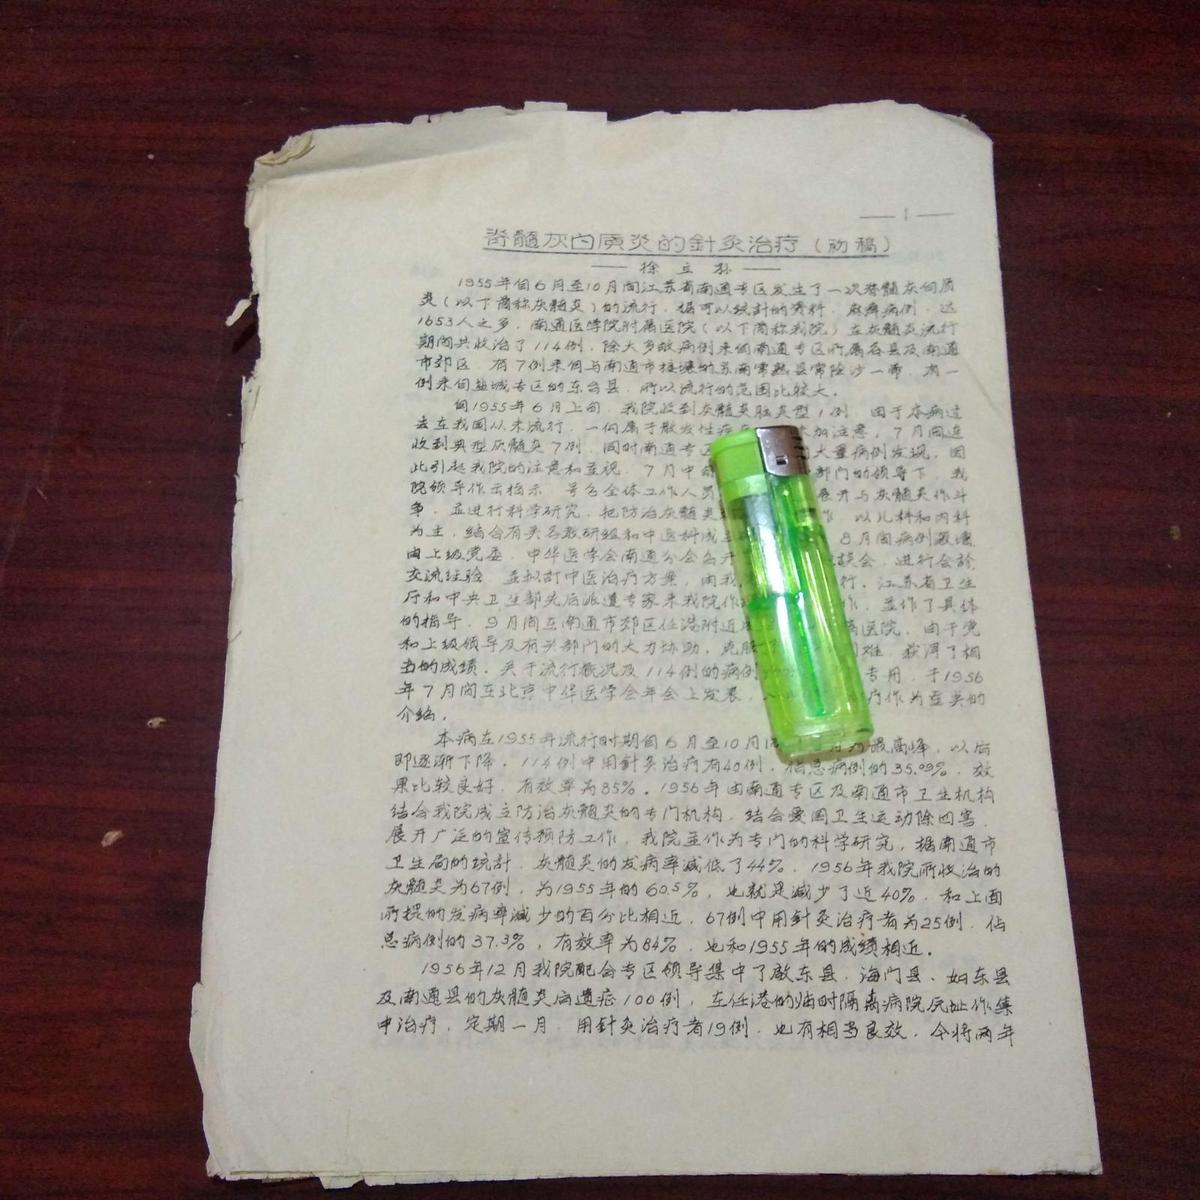 — 1 —
脊髓灰白质炎的針灸治疗（初稿）
— 徐立孙 —
1955年自6月至10月间江苏省南通专区发生了一次脊髓灰白质
炎（以下简称灰髓炎）的流行，据可以统計的资料，麻痹病例，达
1653人之多，南通医学院附属医院（以下简称我院）在灰髓炎流行
期间共收治了114例，除大多数病例来自南通专区所属各县及南通
市郊区，有7例来自与南通市接壤的苏南常熟县常阴沙一带，有一
例来自盐城专区的东台县，所以流行的范围比较大。
自1955年6月上旬，我院收到灰髓炎脑炎型1例，由于本病过
去在我国从未流行，一向属于散发性 加注意，7月间连
收到典型灰髓炎7例，同时南通专区 大量病例发现，因
此引起我院的注意和重视，7月中旬 部门的领导下，我
院领导作出指示，号召全体工作人员 展开与灰髓炎作斗
争，並进行科学研究，把防治灰髓炎 作，以儿科和内科
为主，结合有关各教研组和中医科成立 8月间病例激增
由上级党委，中华医学会南通分会召开 谈会，进行会診
交流经验，並拟訂中医治疗方案，由我 行。江苏省卫生
厅和中央卫生部先后派遣专家来我院作 作，並作了具体
的指导，9月间在南通市郊区任港附近 医院，由于党
和上级领导及有关部门的大力协助，克服了 困难，获得了相
当的成绩。关于流行概况及114例的病例 专用，于1956
年7月间在北京中华医学会年会上发表， 疗作为重点的
介绍。
本病在1955年流行时期自6月至10月 为最高峰，以后
即逐渐下降，114例中用針灸治疗有40例，佔总病例的35.09%，效
果比较良好，有效率为85%。1956年由南通专区及南通市卫生机构
结合我院成立防治灰髓炎的专门机构，结合爱国卫生运动除四害，
展开广泛的宣传预防工作，我院並作为专门的科学研究，据南通市
卫生局的统計，灰髓炎的发病率减低了44%，1956年我院所收治的
灰髓炎为67例，为1955年的60.5%，也就是减少了近40%，和上面
所提的发病率减少的百分比相近，67例中用針灸治疗者为25例，佔
总病例的37.3%，有效率为84%，也和1955年的成绩相近。
1956年12月我院配合专区领导集中了啟东县、海门县、如东县
及南通县的灰髓炎后遗症100例，在任港的临时隔离病院原址作集
中治疗，定期一月，用針灸治疗者19例，也有相当良效，今将两年